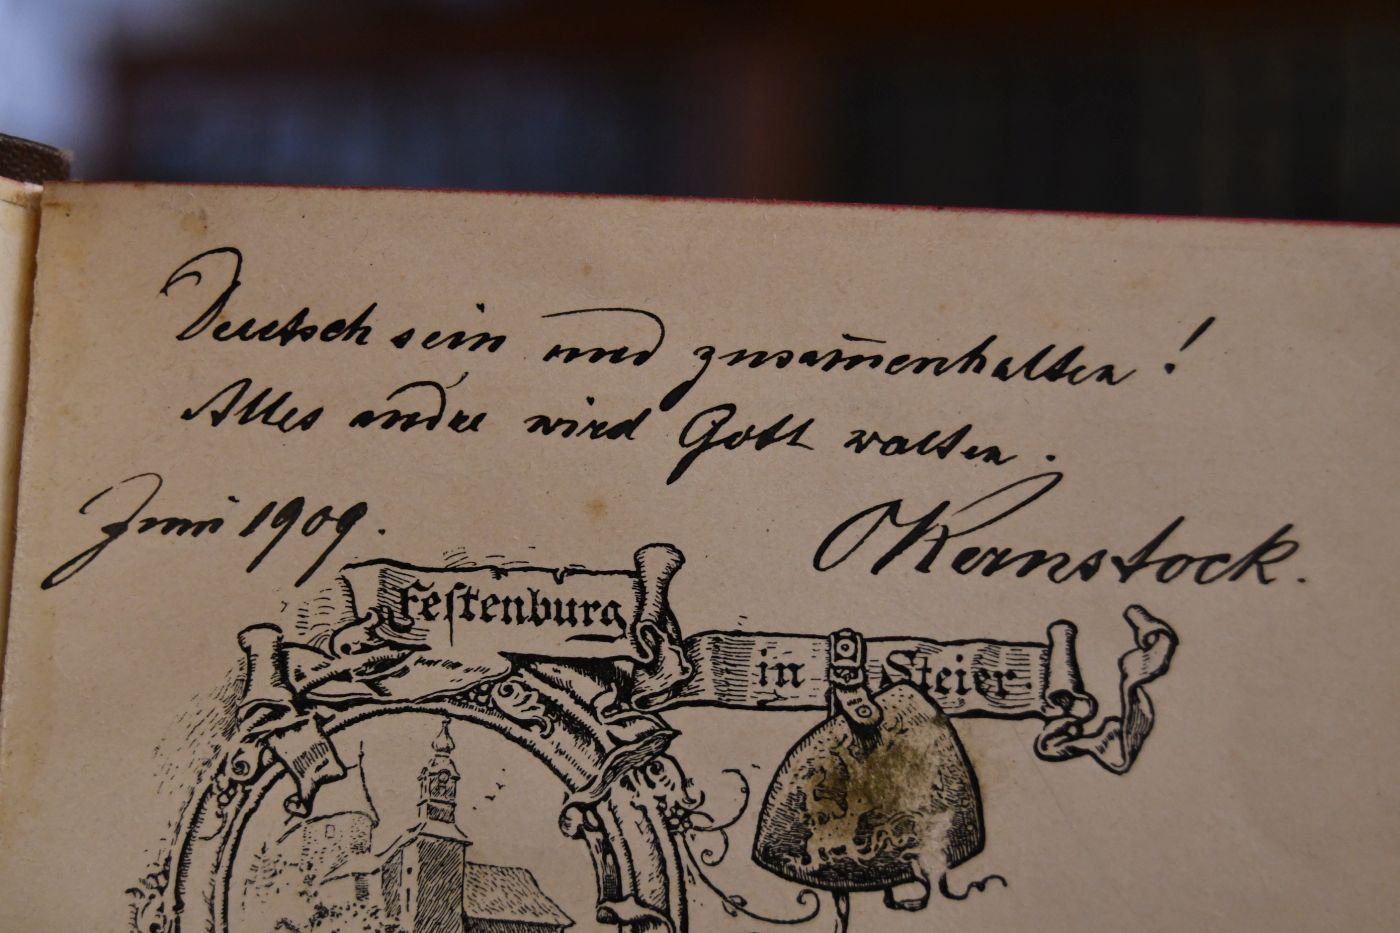 Deutsch sein und zusam̅enhalten!
Alles andre wird Gott walten.
Juni 1909.
OKernstock.
Festenburg
in Steier